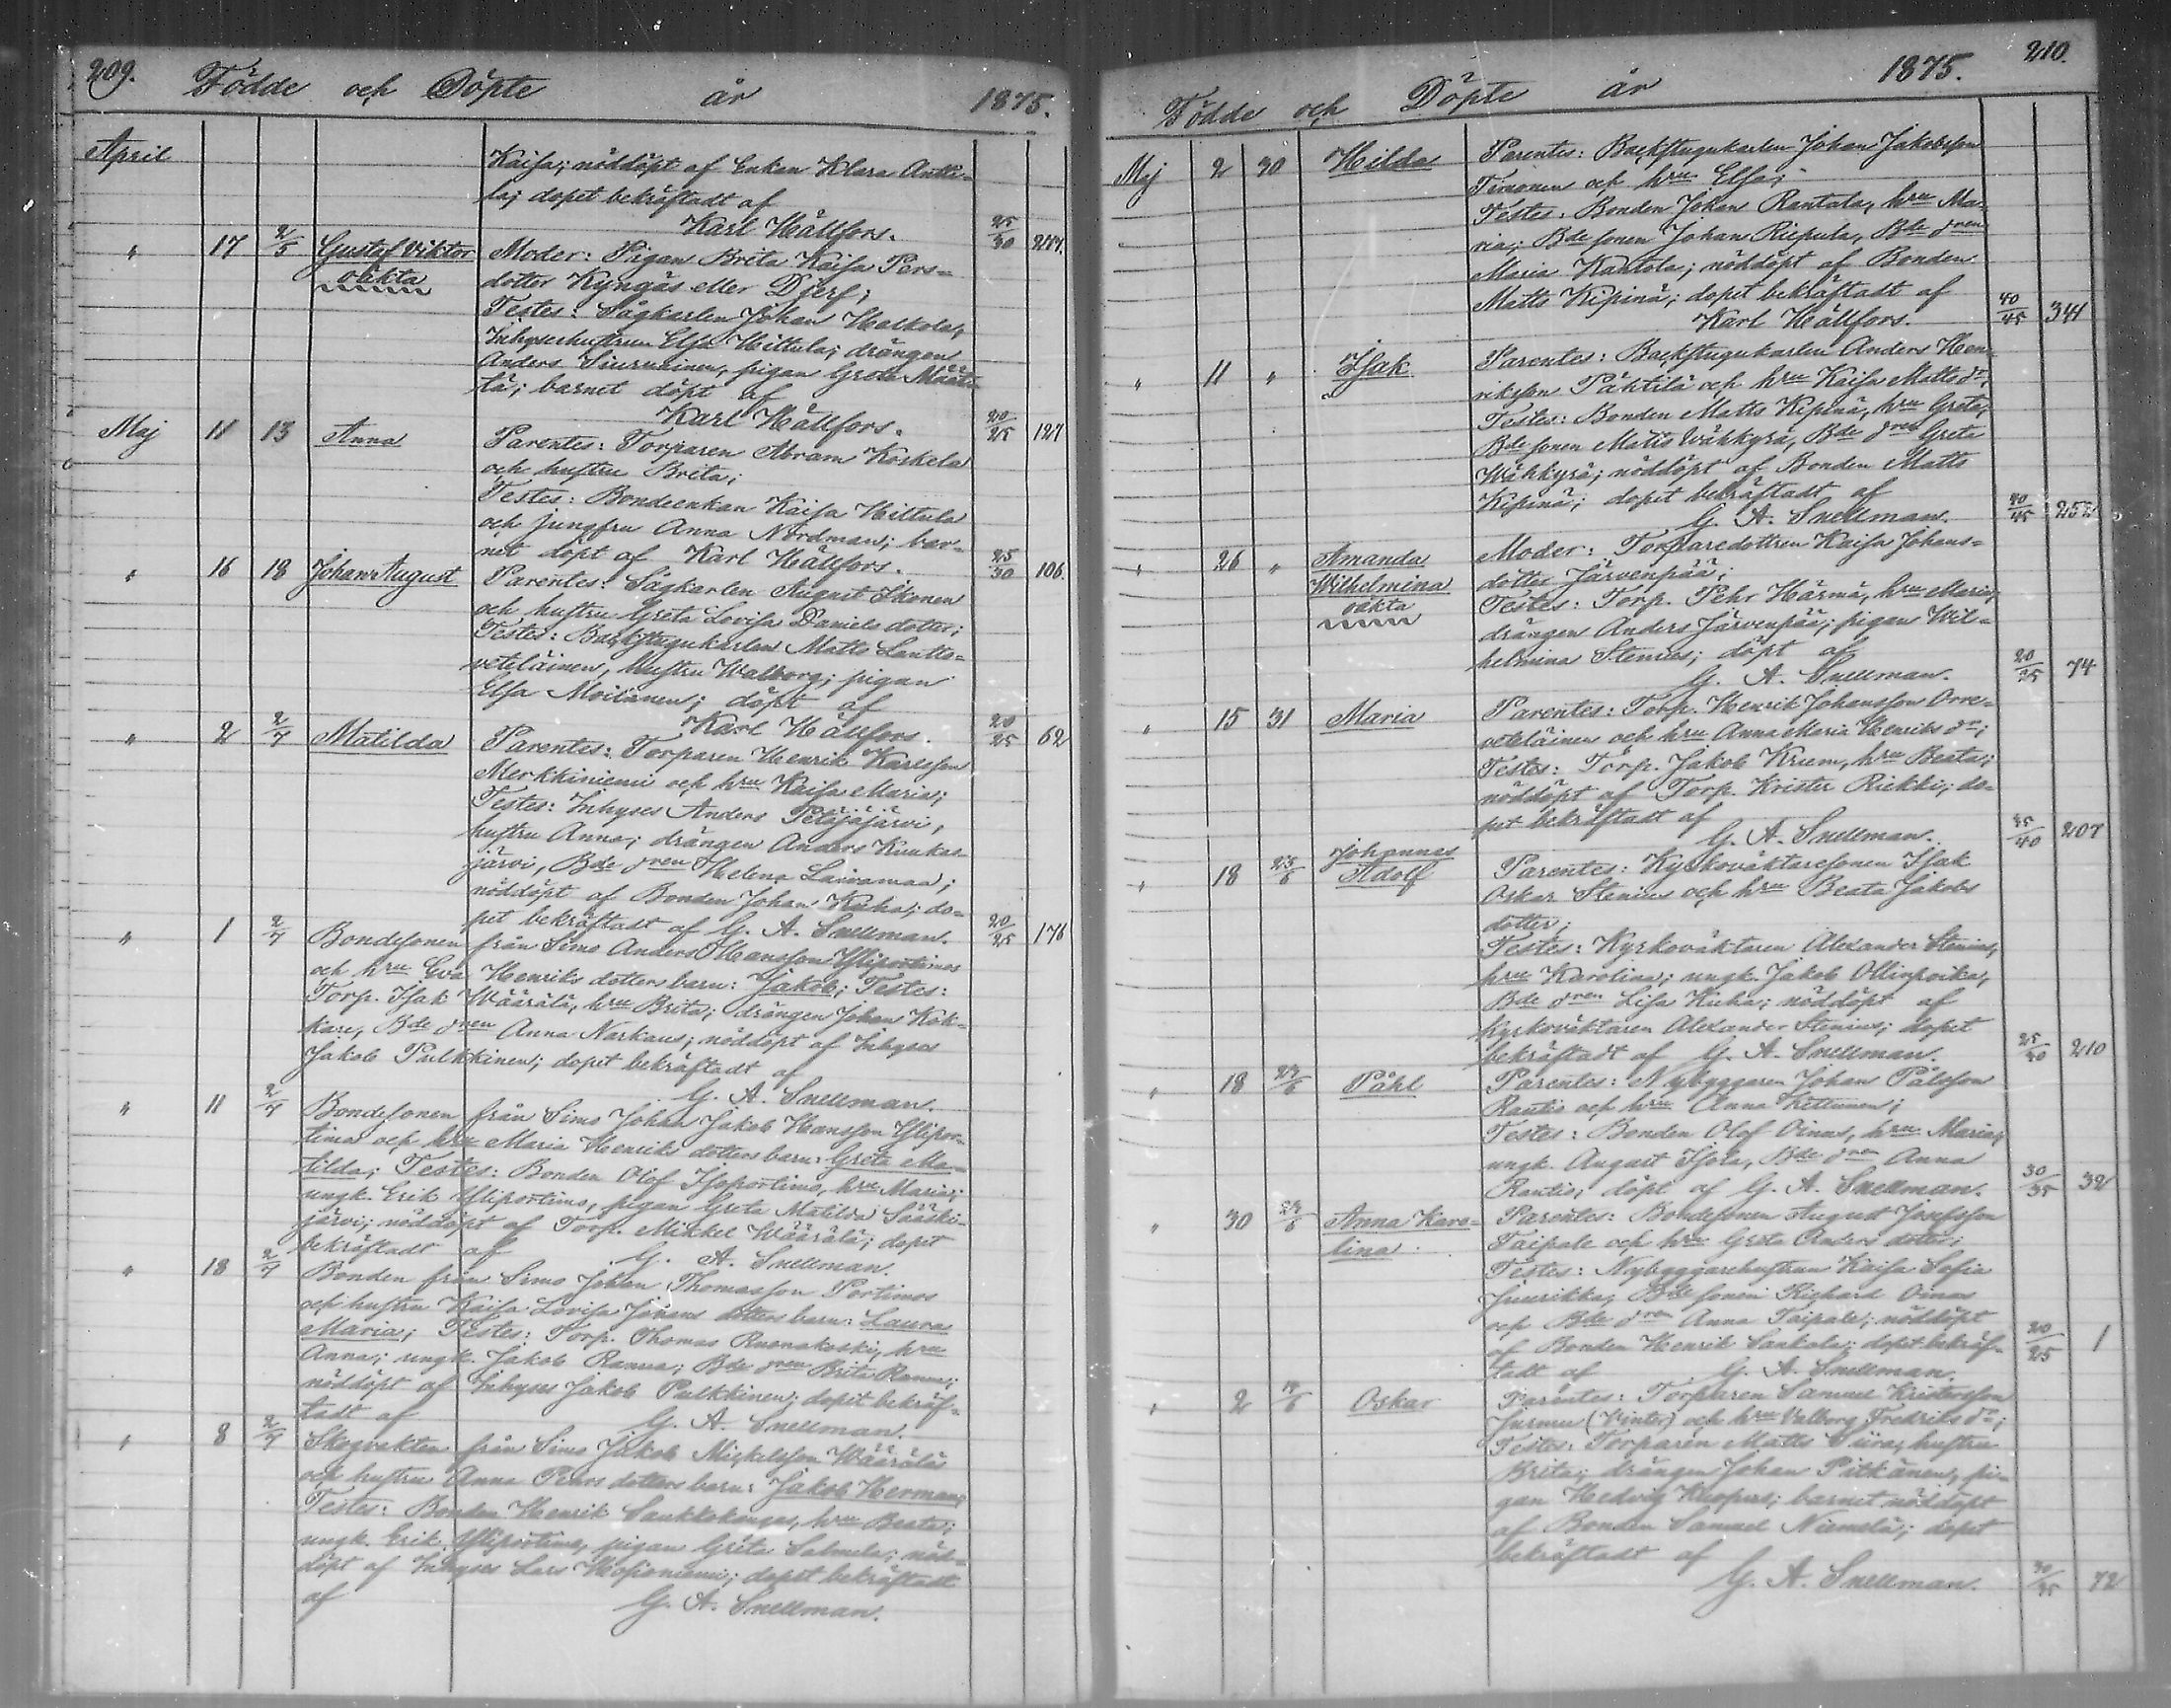 209. Födde och Döpte år 1875.
April
Kaisa; nöddöpt af Enkan Klara Antti-
la; dopet bekräftadt af
Karl Hällfors. 25/30 217.
" 17 2/5 Gustaf Viktor Moder: Pigan Brita Kaisa Pers-
oäkta dotter Kyngäs eller Djerf;
Testes: Sågkarlen Johan Halkola,
Inhyseshustrun Elsa Hiltula; drängen
Anders Siuruainen, pigan Greta Määt-
tä; barnet döpt af
Karl Hällfors. 20/25 127
Maj 11 13 Anna Parentes: Torparen Abram Koskela
och hustru Brita;
Testes: Bondeenkan Kaisa Hiltula
och jungfru Anna Nordman; bar-
net döpt af Karl Hällfors. 25/30 106.
" 16 18 Johan August Parentes: Sågkarlen August Ikonen
och hustru Greta Lovisa Daniels dotter;
Testes: Backstugukarlen Matts Lantto-
veteläinen, hustru Walborg; pigan
Elsa Moilanen; döpt af
Karl Hällfors. 20/25 62
" 2 2/7 Matilda Parentes: Torparen Henrik Karlsson
Merkkiniemi och hru Kaisa Maria;
Testes: Inhyses Anders Petäjäjärvi,
hustru Anna; drängen Anders Kuukas-
järvi, Bde dren Helena Laivamaa;
nöddöpt af Bonden Johan Kuha; do-
pet bekräftadt af G. A. Snellman. 20/25 176
" 1 2/7 Bondesonen från Simo Anders Hansson Yliportimos
och hru Eva Henriks dotters barn: Jakob; Testes:
Torp. Isak Wäärälä, hru Brita; drängen Johan Kok-
kare, Bde dren Anna Narkaus; nöddöpt af Inhyses
Jakob Pulkkinen; dopet bekräftadt af
G. A. Snellman.
" 11 2/7 Bondesonen från Simo Johan Jakob Hansson Ylipor-
timos och hru Maria Henriks dotters barn: Greta Ma-
tilda; Testes: Bonden Olof Isoportimo, hru Maria;
ungk. Erik Yliportimo, pigan Greta Matilda Sääski-
järvi; nöddöpt af Torp. Mikkel Wäärälä; dopet
bekräftadt af G. A. Snellman.
" 18 2/7 Bonden från Simo Johan Thomasson Portimos
och hustru Kaisa Lovisa Johans dotters barn: Laura
Maria; Testes: Torp. Thomas Ruonakoski, hru
Anna; ungk. Jakob Ranua; Bde dren Brita Ranua;
nöddöpt af Inhyses Jakob Pulkkinen; dopet bekräf-
tadt af G. A. Snellman.
" 8 2/7 Skogvakten från Simo Jakob Mickelsson Wäärälä
och hustru Anna Pehrs dotters barn: Jakob Herman;
Testes: Bonden Henrik Saukkokangas, hru Beata;
ungk. Erik Yliportimo, pigan Greta Salmela; nöd-
döpt af Inhyses Lars Hosioniemi; dopet bekräftadt
af G. A. Snellman.
Födde och Döpte år 1875. 210.
Maj 2 30 Hilda Parentes: Backstugukarlen Johan Jakobsson
Timonen och hru Elsa;
Testes: Bonden Johan Rantala, hru Ma-
ria; Bde sonen Johan Riepula, Bde dren
Maria Kantola; nöddöpt af Bonden
Matts Kipinä; dopet bekräftadt af
Karl Hällfors. 40/45 341
" 11 " Isak Parentes: Backstugukarlen Anders Hen-
riksson Pähtilä och hru Kaisa Matts dr;
Testes: Bonden Matts Kipinä, hru Greta;
Bde sonen Matts Wähkyrä, Bde dren Greta
Wähkyrä; nöddöpt af Bonden Matts
Kipinä; dopet bekräftadt af
G. A. Snellman. 40/45 252
" 26 " Amanda Moder: Torparedottren Kaisa Johans-
Wilhelmina dotter Järvenpää;
oäkta Testes: Torp. Pehr Härmä, hru Maria;
drängen Anders Järvenpää; pigan Wil-
helmina Stenius; döpt af
G. A. Snellman. 20/25 74
" 15 31 Maria Parentes: Torp. Henrik Johansson Orre-
veteläinen och hru Anna Maria Henriks dr;
Testes: Torp. Jakob Krum, hru Beata;
nöddöpt af Torp. Krister Riekki; do-
pet bekräftadt af
G. A. Snellman. 35/40 207
" 18 25/6 Johannes Adolf Parentes: Kyrkoväktaresonen Isak
Oskar Stenius och hru Beata Jakobs
dotter;
Testes: Kyrkoväktaren Alexander Stenius,
hru Karolina; ungk. Jakob Ollinpoika,
Bde dren Lisa Kuha; nöddöpt af
Kyrkoväktaren Alexander Stenius; dopet
bekräftadt af G. A. Snellman. 25/30 210
" 18 27/6 Påhl Parentes: Nybyggaren Johan Pålsson
Rautio och hru Anna Kettunen;
Testes: Bonden Olof Oinas, hru Maria;
ungk. August Isola, Bde dren Anna
Rautio; döpt af G. A. Snellman. 30/35 32
" 30 27/6 Anna Karo- Parentes: Bondesonen August Josefsson
lina Taipale och hru Greta Anders dotter;
Testes: Nybyggarehustrun Kaisa Sofia
Juurikka; Bde sonen Richard Oinas
och Bde dren Anna Taipale; nöddöpt
af Bonden Henrik Sankala; dopet bekräf-
tadt af G. A. Snellman. 20/25 1
" 2 19/6 Oskar Parentes: Torparen Samuel Kristersson
Jurmu (Vinter) och hru Valborg Fredriks dr;
Testes: Torparen Matts Siira, hustru
Brita; drängen Johan Pitkänen, pi-
gan Hedvig Kuopus; barnet nöddöpt
af Bonden Samuel Niemelä; dopet
bekräftadt af
G. A. Snellman. 30/35 72